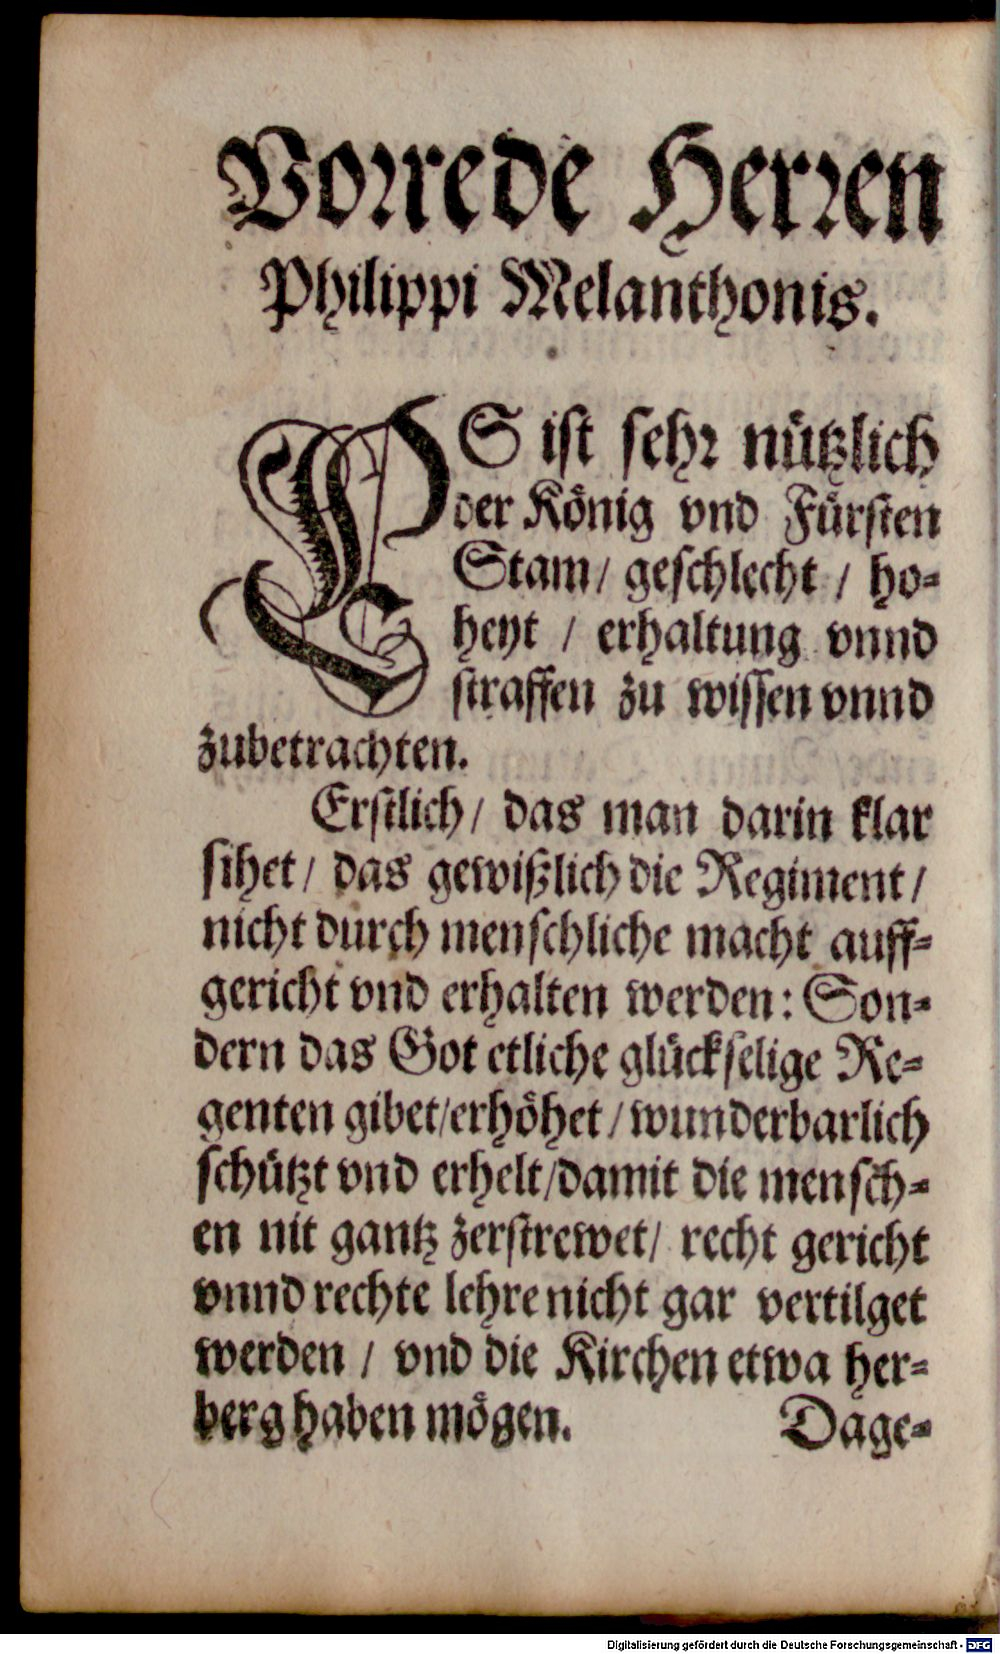 Vorrede Herren
Philippi Melanthonis.
ES ist sehr nützlich
der König vnd Fürsten
Stam/ geschlecht / ho-
heyt / erhaltung vnnd
straffen zu wissen vnnd
zubetrachten.
Erstlich/ das man darin klar
sihet/ das gewißlich die Regiment/
nicht durch menschliche macht auff-
gericht vnd erhalten werden: Son-
dern das Got etliche glückselige Re-
genten gibet/erhöhet/wunderbarlich
schützt vnd erhelt/damit die mensch-
en nit gantz zerstrewet/ recht gericht
vnnd rechte lehre nicht gar vertilget
werden / vnd die Kirchen etwa her-
berg haben mögen. Dage-
Digitalisierung gefördert durch die Deutsche Forschungsgemeinschaft - DFG